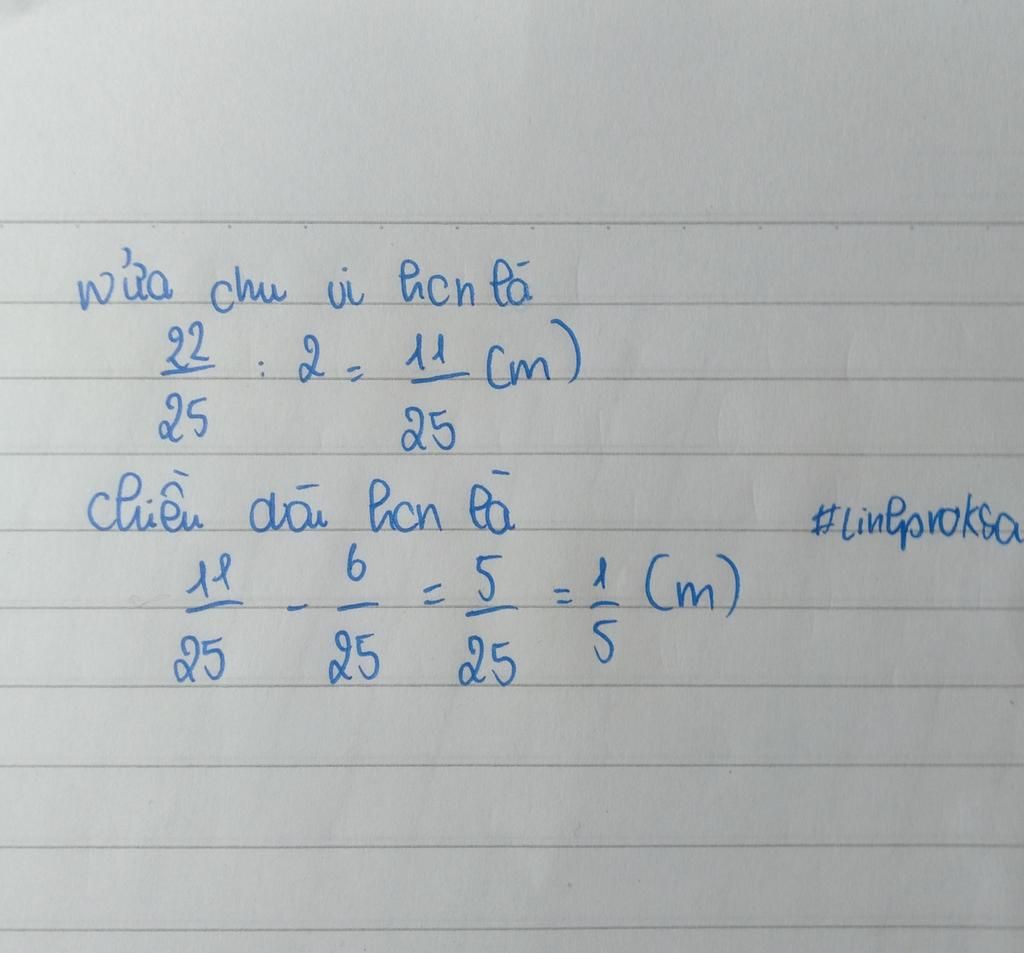 nửa chu vi hcn là
22/25 : 2 = 11/25 (m)
chiều dài hcn là
11/25 - 6/25 = 5/25 = 1/5 (m)
#linhproksa